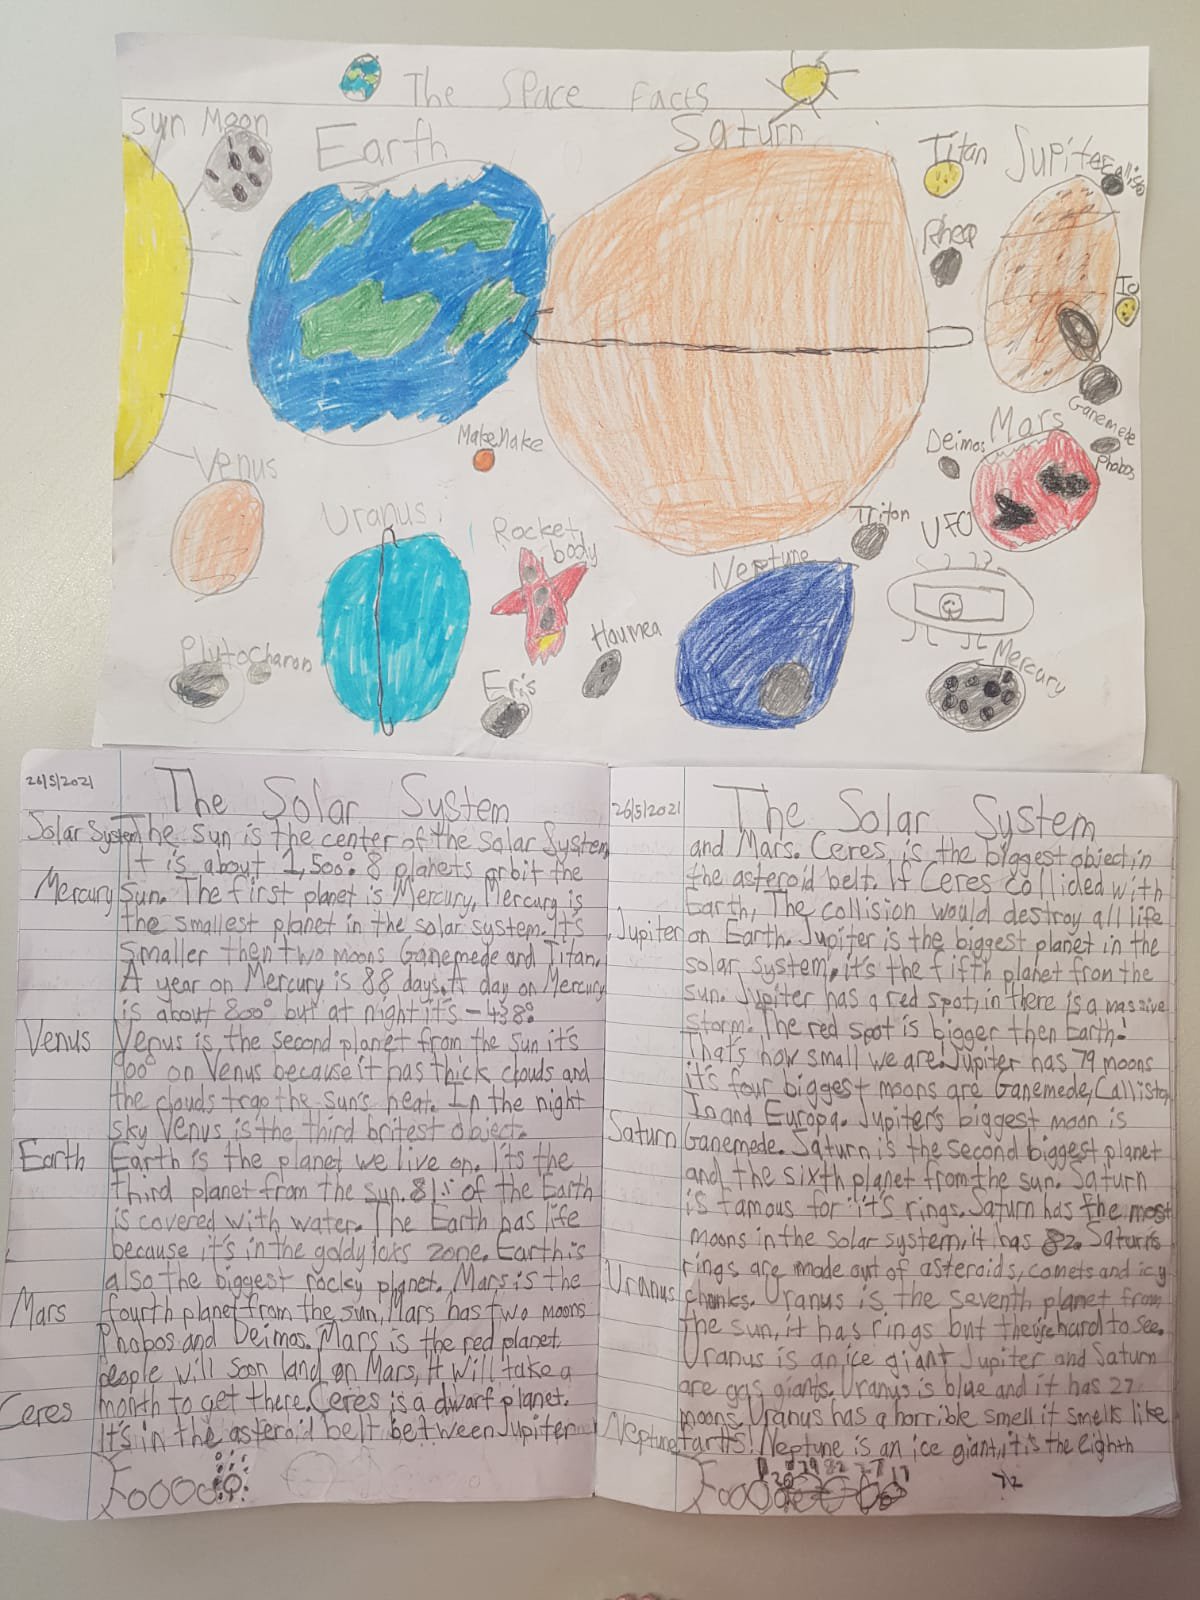 The Space Facts
Sun Moon
Earth
Saturn
Titan
Jupiter
Callisto
Rhea
Io
Ganemede
Mars
Deimos
Phobos
MakeMake
Venus
Uranus
Rocket
body
Triton
UFO
Neptune
Haumea
Pluto Charon
Eris
Mercury
26/5/2021
The Solar System
Solar System The Sun is the center of the Solar System,
It is about 1,500° 8 planets orbit the
Mercury Sun. The first planet is Mercury, Mercury is
the smallest planet in the solar system. It's
smaller then two moons Ganemede and Titan.
A year on Mercury is 88 days. A day on Mercury
is about 800° but at night it's -438°
Venus Venus is the second planet from the sun it's
900° on Venus because it has thick clouds and
the clouds trap the sun's heat. In the night
sky Venus is the third britest object.
Earth Earth is the planet we live on. It's the
third planet from the sun. of the Earth
is covered with water. The Earth has life
because it's in the goldylocks zone. Earth is
also the biggest rocky planet. Mars is the
Mars fourth planet from the sun, Mars has two moons
Phobos and Deimos. Mars is the red planet.
people will soon land on Mars, it will take a
month to get there. Ceres is a dwarf planet.
Ceres It's in the asteroid belt between Jupiter
26/5/2021
The Solar System
and Mars. Ceres is the biggest object in
the asteroid belt. If Ceres collided with
Earth, The collision would destroy all life
Jupiter on Earth. Jupiter is the biggest planet in the
solar system, it's the fifth planet from the
sun. Jupiter has a red spot, in there is a massive
storm. The red spot is bigger then Earth!
That's how small we are. Jupiter has 79 moons
it's four biggest moons are Ganemede, Callisto,
Io and Europa. Jupiter's biggest moon is
Saturn Ganemede. Saturn is the second biggest planet
and the sixth planet from the sun. Saturn
is famous for it's rings. Saturn has the most
moons in the solar system, it has 82. Saturn's
rings are made out of asteroids, comets and icy
Uranus chunks. Uranus is the seventh planet from
the sun, it has rings but they're hard to see.
Uranus is an ice giant Jupiter and Saturn
are gas giants. Uranus is blue and it has 27
moons. Uranus has a horrible smell it smells like
Neptune farts! Neptune is an ice giant, it is the eighth